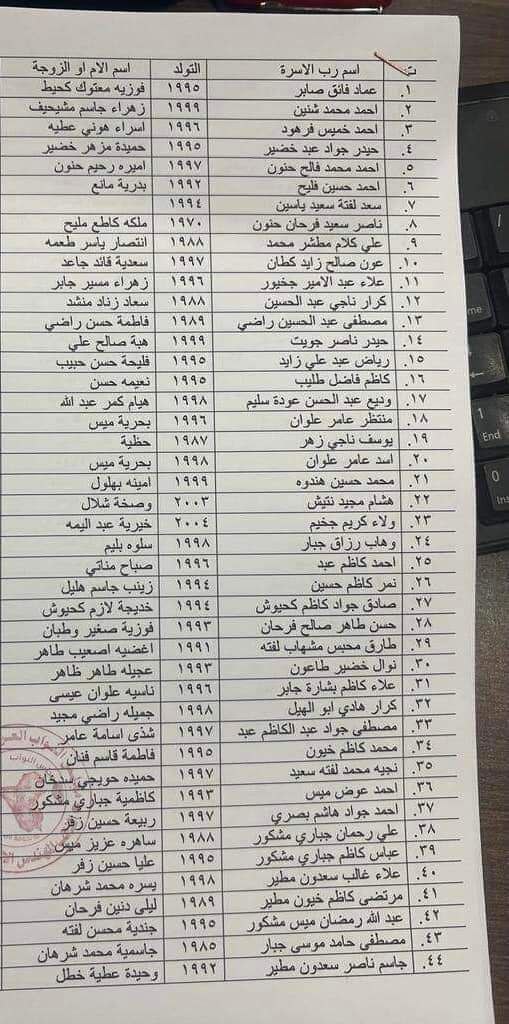 ت اسم رب الاسرة التولد اسم الام او الزوجة
١. عماد فائق صابر ١٩٩٥ فوزيه معتوك كحيط
٢. احمد محمد شنين ١٩٩٩ زهراء جاسم مشيحيف
٣. احمد خميس فرهود ١٩٩٦ اسراء هوني عطيه
٤. حيدر جواد عبد خضير ١٩٩٥ حميدة مزهر خضير
٥. احمد محمد فالح حنون ١٩٩٧ اميره رحيم حنون
٦. احمد حسين فليح ١٩٩٢ بدرية مانع
٧. سعد لفتة سعيد ياسين ١٩٩٤
٨. ناصر سعيد فرحان حنون ١٩٧٠ ملكه كاطع مليح
٩. علي كلام مطشر محمد ١٩٨٨ انتصار ياسر طعمه
١٠. عون صالح زايد كطان ١٩٩٧ سعدية قائد جاعد
١١. علاء عبد الامير جخيور ١٩٩٦ زهراء مسير جابر
١٢. كرار ناجي عبد الحسين ١٩٨٨ سعاد زناد منشد
١٣. مصطفى عبد الحسين راضي ١٩٨٩ فاطمة حسن راضي
١٤. حيدر ناصر جويت ١٩٩٩ هبة صالح علي
١٥. رياض عبد علي زايد ١٩٩٥ فليحة حسن حبيب
١٦. كاظم فاضل طليب ١٩٩٥ نعيمه حسن
١٧. وديع عبد الحسن عودة سليم ١٩٩٨ هيام كمر عبد الله
١٨. منتظر عامر علوان ١٩٩٦ بحرية ميس
١٩. يوسف ناجي زهر ١٩٨٧ حظية
٢٠. اسد عامر علوان ١٩٩٨ بحرية ميس
٢١. محمد حسين هندوه ١٩٩٩ امينه بهلول
٢٢. هشام مجيد نتيش ٢٠٠٣ وصخة شلال
٢٣. ولاء كريم جخيم ٢٠٠٤ خيرية عبد اليمه
٢٤. وهاب رزاق جبار ١٩٩٨ سلوه بليم
٢٥. احمد كاظم عبد ١٩٩٦ صباح مناتي
٢٦. نمر كاظم حسين ١٩٩٤ زينب جاسم هليل
٢٧. صادق جواد كاظم كحيوش ١٩٩٤ خديجة لازم كحيوش
٢٨. حسن طاهر صالح فرحان ١٩٩٣ فوزية صغير وطبان
٢٩. طارق محبس مشهاب لفته ١٩٩١ اغضيه اصعيب طاهر
٣٠. نوال خضير طاعون ١٩٩٣ عجيله طاهر ظاهر
٣١. علاء كاظم بشارة جابر ١٩٩٦ ناسيه علوان عيسى
٣٢. كرار هادي ابو الهيل ١٩٩٨ جميله راضي مجيد
٣٣. مصطفى جواد عبد الكاظم عبد ١٩٩٧ شذى اسامة عامر
٣٤. محمد كاظم خيون ١٩٩٥ فاطمة قاسم فنان
٣٥. نجيه محمد لفته سعيد ١٩٩٧ حميده حويجي سدخان
٣٦. احمد عوض ميس ١٩٩٣ كاظمية جباري مشكور
٣٧. احمد جواد هاشم بصري ١٩٩٧ ربيعة حسين زفر
٣٨. علي رحمان جباري مشكور ١٩٨٨ ساهره عزيز ميس
٣٩. عباس كاظم جباري مشكور ١٩٩٥ عليا حسين زفر
٤٠. علاء غالب سعدون مطير ١٩٩٨ يسره محمد شرهان
٤١. مرتضى كاظم خيون مطير ١٩٨٩ ليلى دنين فرحان
٤٢. عبد الله رمضان ميس مشكور ١٩٩٥ جندية محسن لفته
٤٣. مصطفى حامد موسى جبار ١٩٨٥ جاسمية محمد شرهان
٤٤. جاسم ناصر سعدون مطير ١٩٩٢ وحيدة عطية خطل
Home
1
End
0
Ins